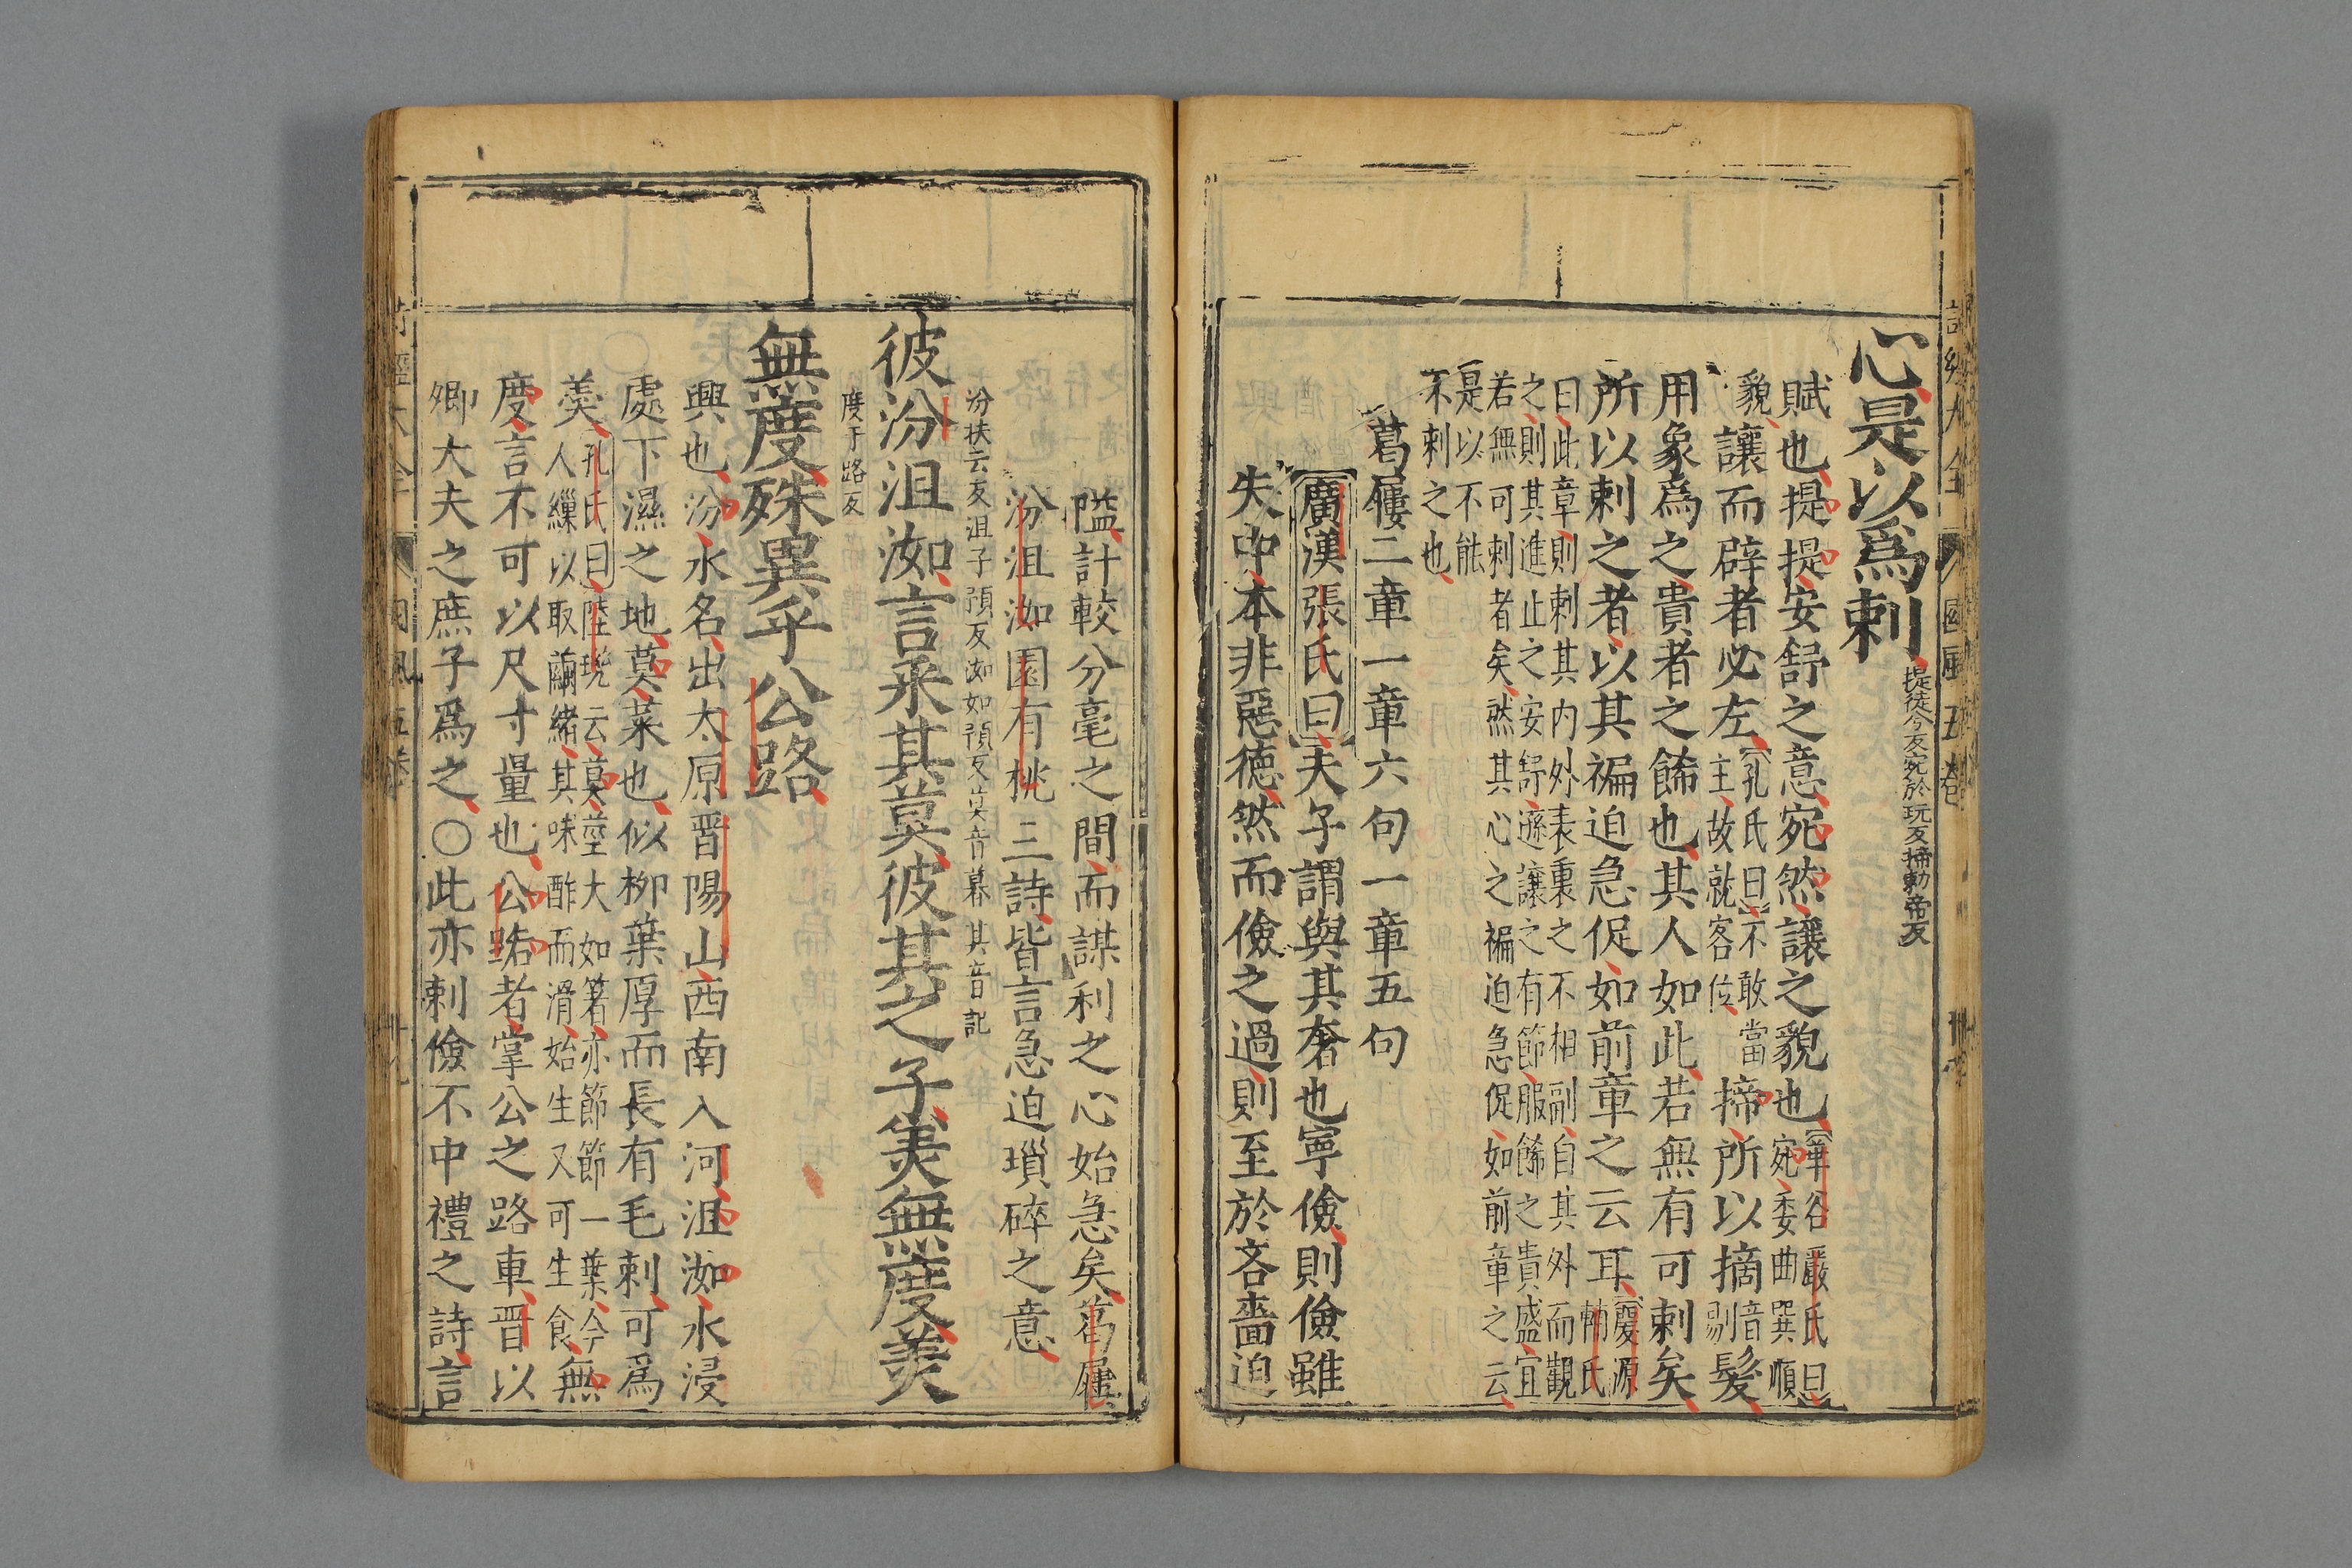 心是以爲刺
提徒兮反宛於玩反揥勅帝反
賦也提提安舒之意宛然讓之貌也
華谷嚴氏曰
宛委曲巽順
貌讓而辟者必左
孔氏曰不敢當
主故就客位
揥所以摘
音
剔
髮
用象爲之貴者之飾也其人如此若無有可刺矣
所以刺之者以其褊迫急促如前章之云耳
慶源
輔氏
曰此章則刺其内外表裏之不相副自其外而觀
之則其進止之安舒遜讓之有節服飾之貴盛宜
若無可刺者矣然其心之褊迫急促如前章之云
是以不能
不刺之也
葛屨二章一章六句一章五句
廣漢張氏曰夫子謂與其奢也寧儉則儉雖
失中本非惡德然而儉之過則至於吝嗇迫
隘計較分毫之間而謀利之心始急矣葛屨
汾沮洳園有桃三詩皆言急迫瑣碎之意
汾扶云反沮子預反洳如預反莫音暮其音記
彼汾沮洳言采其莫彼其之子美無度美
度于路反
無度殊異乎公路
興也汾水名出太原晋陽山西南入河沮洳水浸
處下濕之地莫菜也似柳葉厚而長有毛刺可爲
羹
孔氏曰陸璣云莫莖大如箸赤節節一葉今
人繅以取繭緒其味酢而滑始生又可生食
無
度言不可以尺寸量也公路者掌公之路車晋以
卿大夫之庶子爲之○此亦刺儉不中禮之詩言